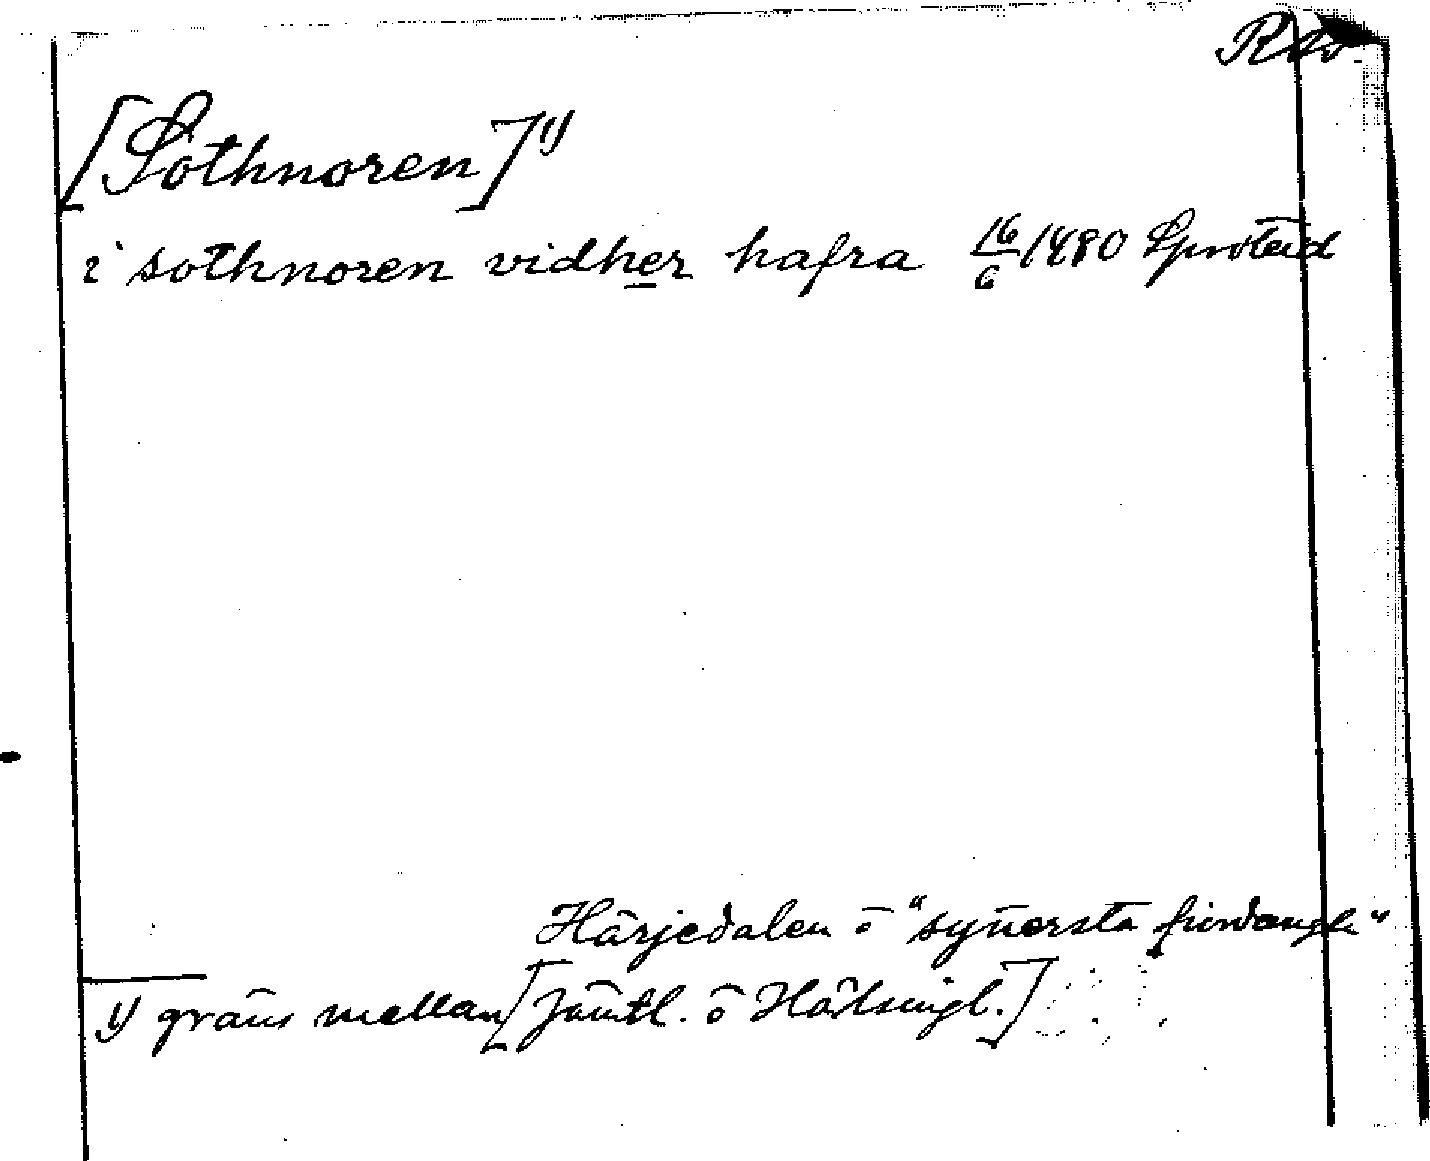 [Sothnoren] 1)
i sothnoren vidher hafra 16/6 1480
Härjedalen o "synersta
1) gräns mellan [Jämtl. o Hälsingl.]